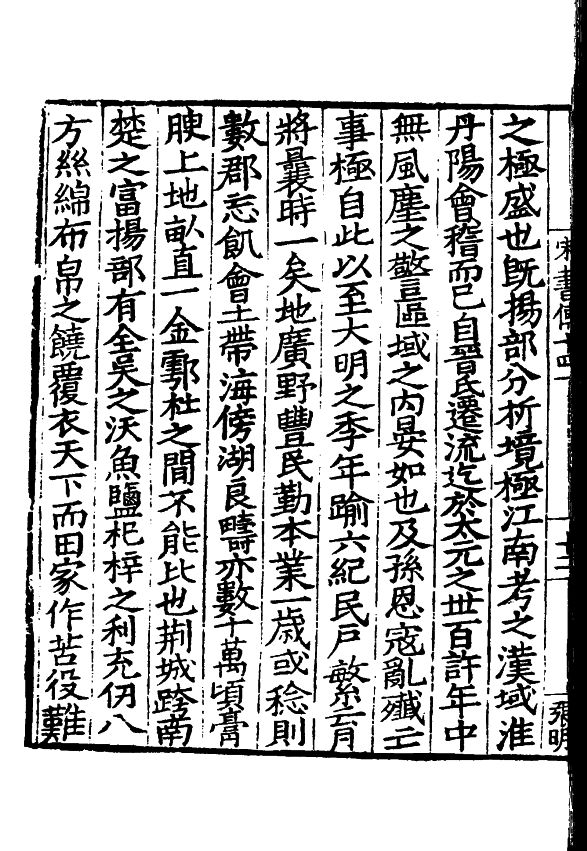 宋書傳十四
張明
之極盛也旣揚部分析境極江南考之漢域淮
丹陽會稽而已自晉氏遷流迄於太元之世百許年中
無風塵之警區域之内晏如也及孫恩寇亂殲亡
事極自此以至大明之季年踰六紀民戶繁育
將曩時一矣地廣野豐民勤本業一歲或稔則
數郡忘飢會土帶海傍湖良疇亦數十萬頃膏
腴上地畝直一金鄠杜之間不能比也荆城跨南
楚之富揚部有全吳之沃魚鹽杞梓之利充仞八
方絲綿布帛之饒覆衣天下而田家作苦役難